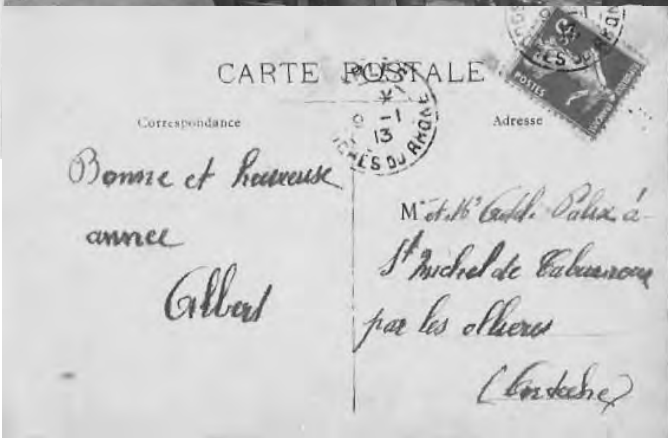 CARTE POSTALE
Correspondance
Adresse
-1
13
CHES DU RHONE
POSTES
Bonne et heureuse
annee
Albert
M et Me Palix à
St Michel de
par les ollieres
(Ardeche)